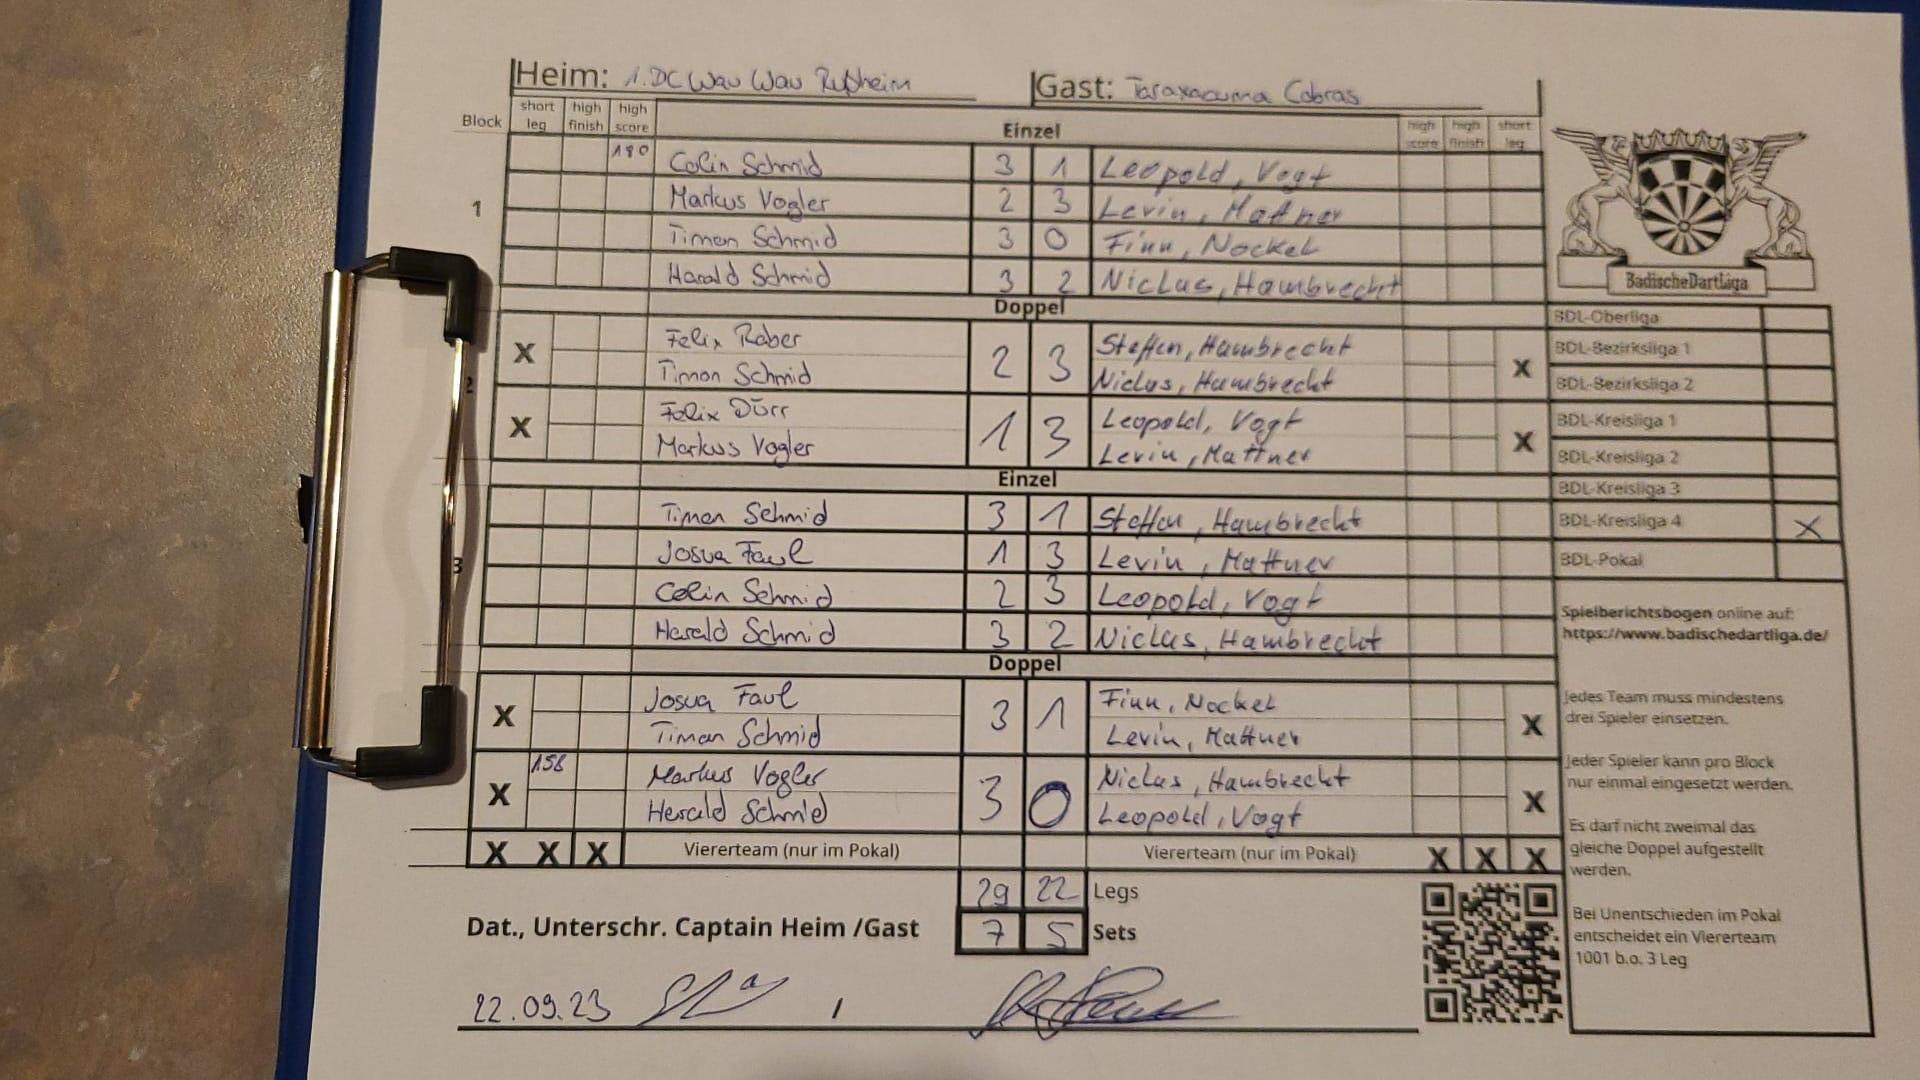 Heim: 1. DC Wau Wau Rußheim Gast: Taraxacuma Cobras
Block short leg high finish high score Einzel high score high finish short leg
180 Colin Schmid 3 1 Leopold, Vogt
1 Markus Vogler 2 3 Levin, Mattner
Timon Schmid 3 0 Finn, Nockel
Harald Schmid 3 2 Niclas, Hambrecht
BadischeDartLiga
Doppel
X Felix Raber 2 3 Steffen, Hambrecht X
2 Timon Schmid Niclas, Hambrecht
X Felix Dürr 1 3 Leopold, Vogt X
Markus Vogler Levin, Mattner
Einzel
Timon Schmid 3 1 Steffen, Hambrecht
3 Josua Faul 1 3 Levin, Mattner
Colin Schmid 2 3 Leopold, Vogt
Harald Schmid 3 2 Niclas, Hambrecht
Doppel
X Josua Faul 3 1 Finn, Nockel X
Timon Schmid Levin, Mattner
X 156 Markus Vogler 3 0 Niclas, Hambrecht X
Harald Schmid Leopold, Vogt
X X X Viererteam (nur im Pokal) Viererteam (nur im Pokal) X X X
29 22 Legs
7 5 Sets
Dat., Unterschr. Captain Heim /Gast
22.09.23 /
BDL-Oberliga
BDL-Bezirksliga 1
BDL-Bezirksliga 2
BDL-Kreisliga 1
BDL-Kreisliga 2
BDL-Kreisliga 3
BDL-Kreisliga 4 X
BDL-Pokal
Spielberichtsbogen online auf:
https://www.badischedartliga.de/
Jedes Team muss mindestens
drei Spieler einsetzen.
Jeder Spieler kann pro Block
nur einmal eingesetzt werden.
Es darf nicht zweimal das
gleiche Doppel aufgestellt
werden.
Bei Unentschieden im Pokal
entscheidet ein Viererteam
1001 b.o. 3 Leg